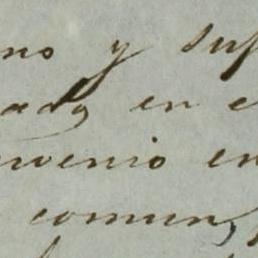 no y suf
ado en e
nvenio en
comun,